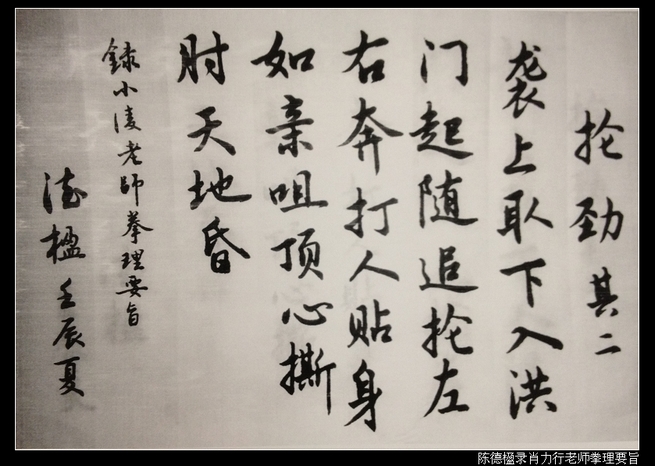 抡劲 其二
袭上取下入洪
门起随追抡左
右奔打人贴身
如亲咀顶心撕
肘天地昏
录小凌老师拳理要旨
德楹壬辰夏
陈德楹录肖力行老师拳理要旨